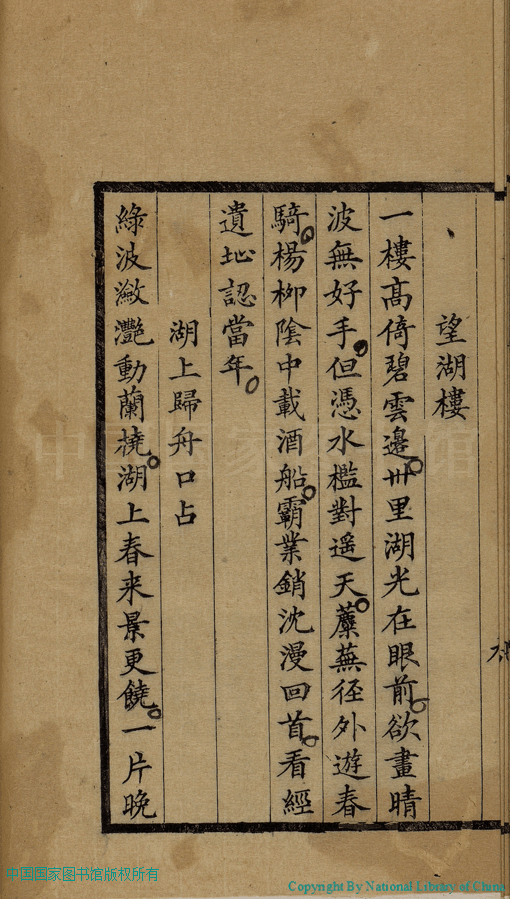 望湖樓
一樓高倚碧雲邊。卅里湖光在眼前。欲畫晴
波無好手。但憑水檻對遥天。蘼蕪径外遊春
騎。楊栁陰中載酒船。霸業銷沈漫回首。看經
遺址認當年。
湖上歸舟口占
綠波瀲灔動蘭橈。湖上春来景更饒。一片晚
中国国家图书馆版权所有
Copyright By National Library of China